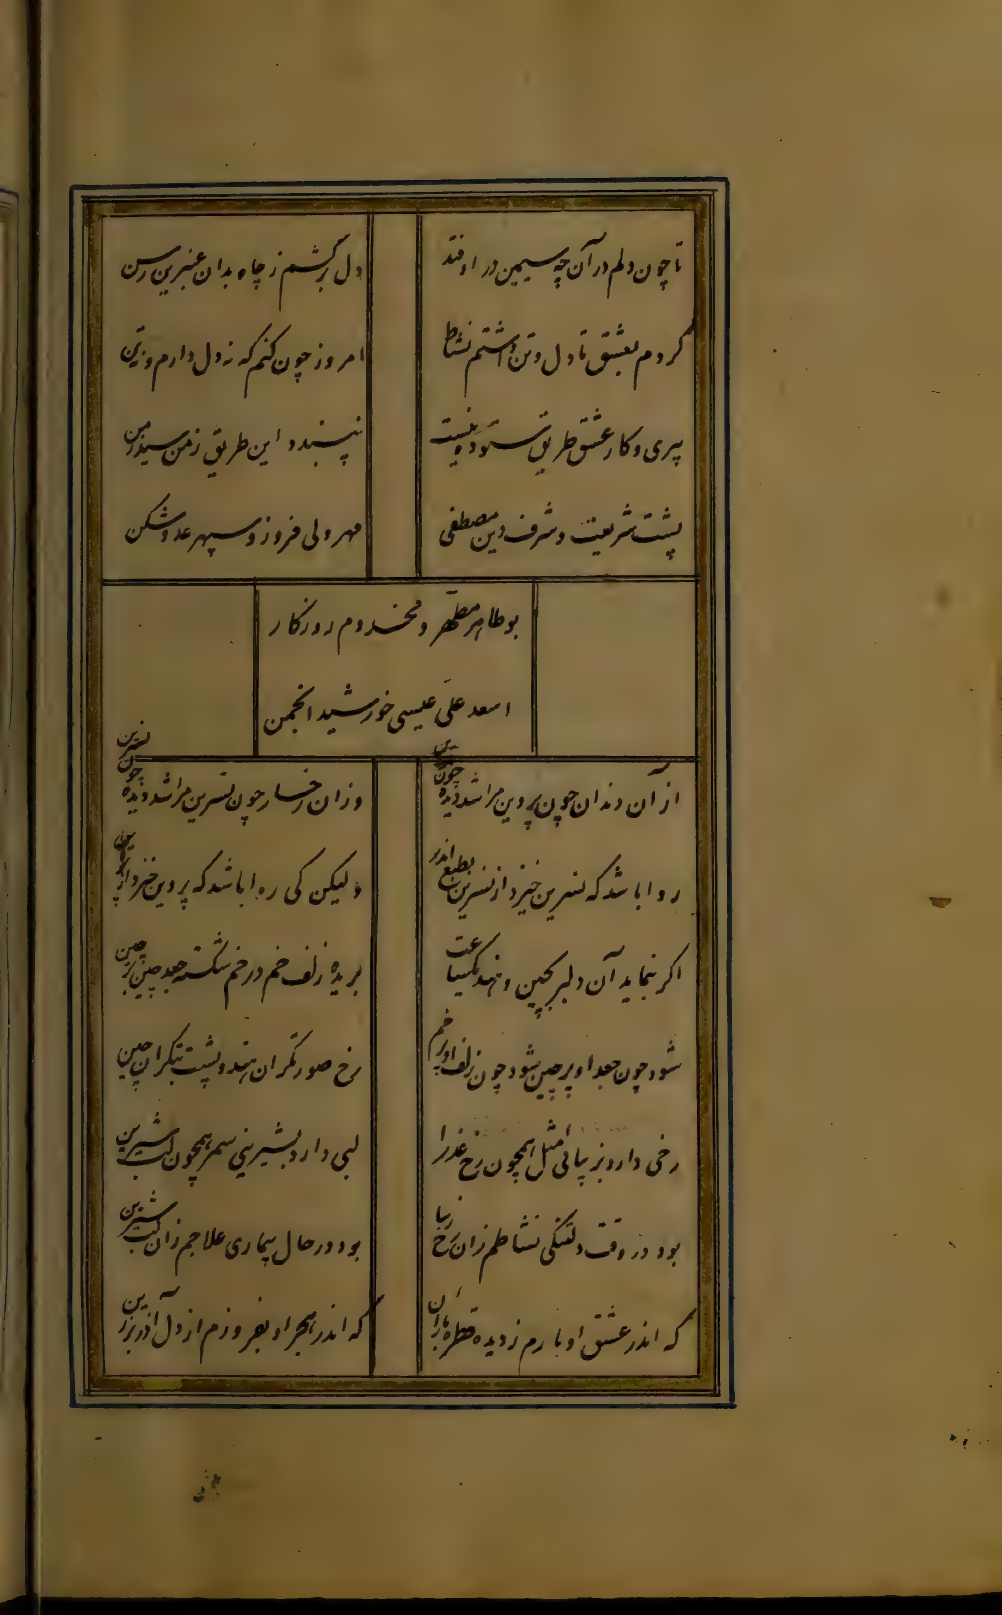 تا چون دلم در آن چه سیمین در اوفتد
دل برکشم ز چاه بدان عنبرین رسن
کردم بعشق تا دل و تن داشتم نشاط
امروز چون کنم که نه دل دارم و نه تن
پیری و کار عشق طریق ستوده نیست
نپسندد این طریق ز من سید زمن
پشت شریعت و شرف دین مصطفی
مهر ولی فروز و سپهر عدو شکن
بوطاهر مطهر و مخدوم روزکار
اسعد علی عیسی خورشید انجمن
از آن دندان چون پروین مرا شد دیده چون
وزان رخسار چون نسرین مرا شد دیده چون نسرین
روا باشد که نسرین خیزد از نسرین بطبع اندر
ولیکن کی روا باشد که پروین خیزد از
اکر بنماید آن دلبر بچین و هند یکساعت
بریده زلف خم در خم شکسته جعد چین بر چین
شود چون جعد او پر چین شود چون زلف او پر خم
رخ صورتکران هند و پشت بتکران چین
رخی دارد بزیبائی مثل همچون رخ عذرا
لبی دارد بشیرینی سمر همچون لب شیرین
بود در وقت دلتنکی نشاطم زان رخ زیبا
بود در حال بیماری علاجم زان لب شیرین
که اندر عشق او بارم ز دیده قطره باران
که اندر هجر او بفروزم از دل آذر برزین